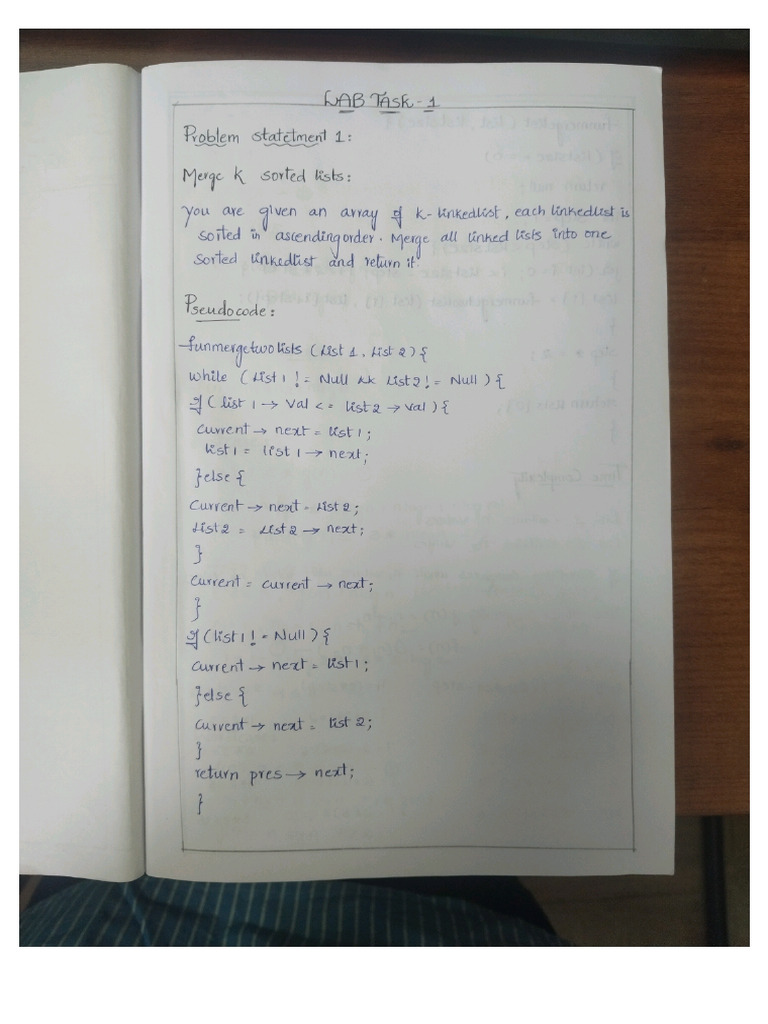 LAB TASK-1
Problem statetment 1:
Merge K sorted lists:
You are given an array of k-linkedlist, each linkedlist is
sorted in ascendingorder. Merge all linked lists into one
sorted linkedlist and return it.
Pseudocode:
funmergetwolists (List 1, List 2) {
while (List 1 != Null && List 2 != Null) {
if (list 1 → Val <= list 2 → Val) {
current → next = list 1;
list 1 = list 1 → next;
} else {
Current → next = List 2;
List 2 = List 2 → next;
}
Current = current → next;
}
if (list 1 != Null) {
Current → next = list 1;
} else {
Current → next = list 2;
}
return pres → next;
}